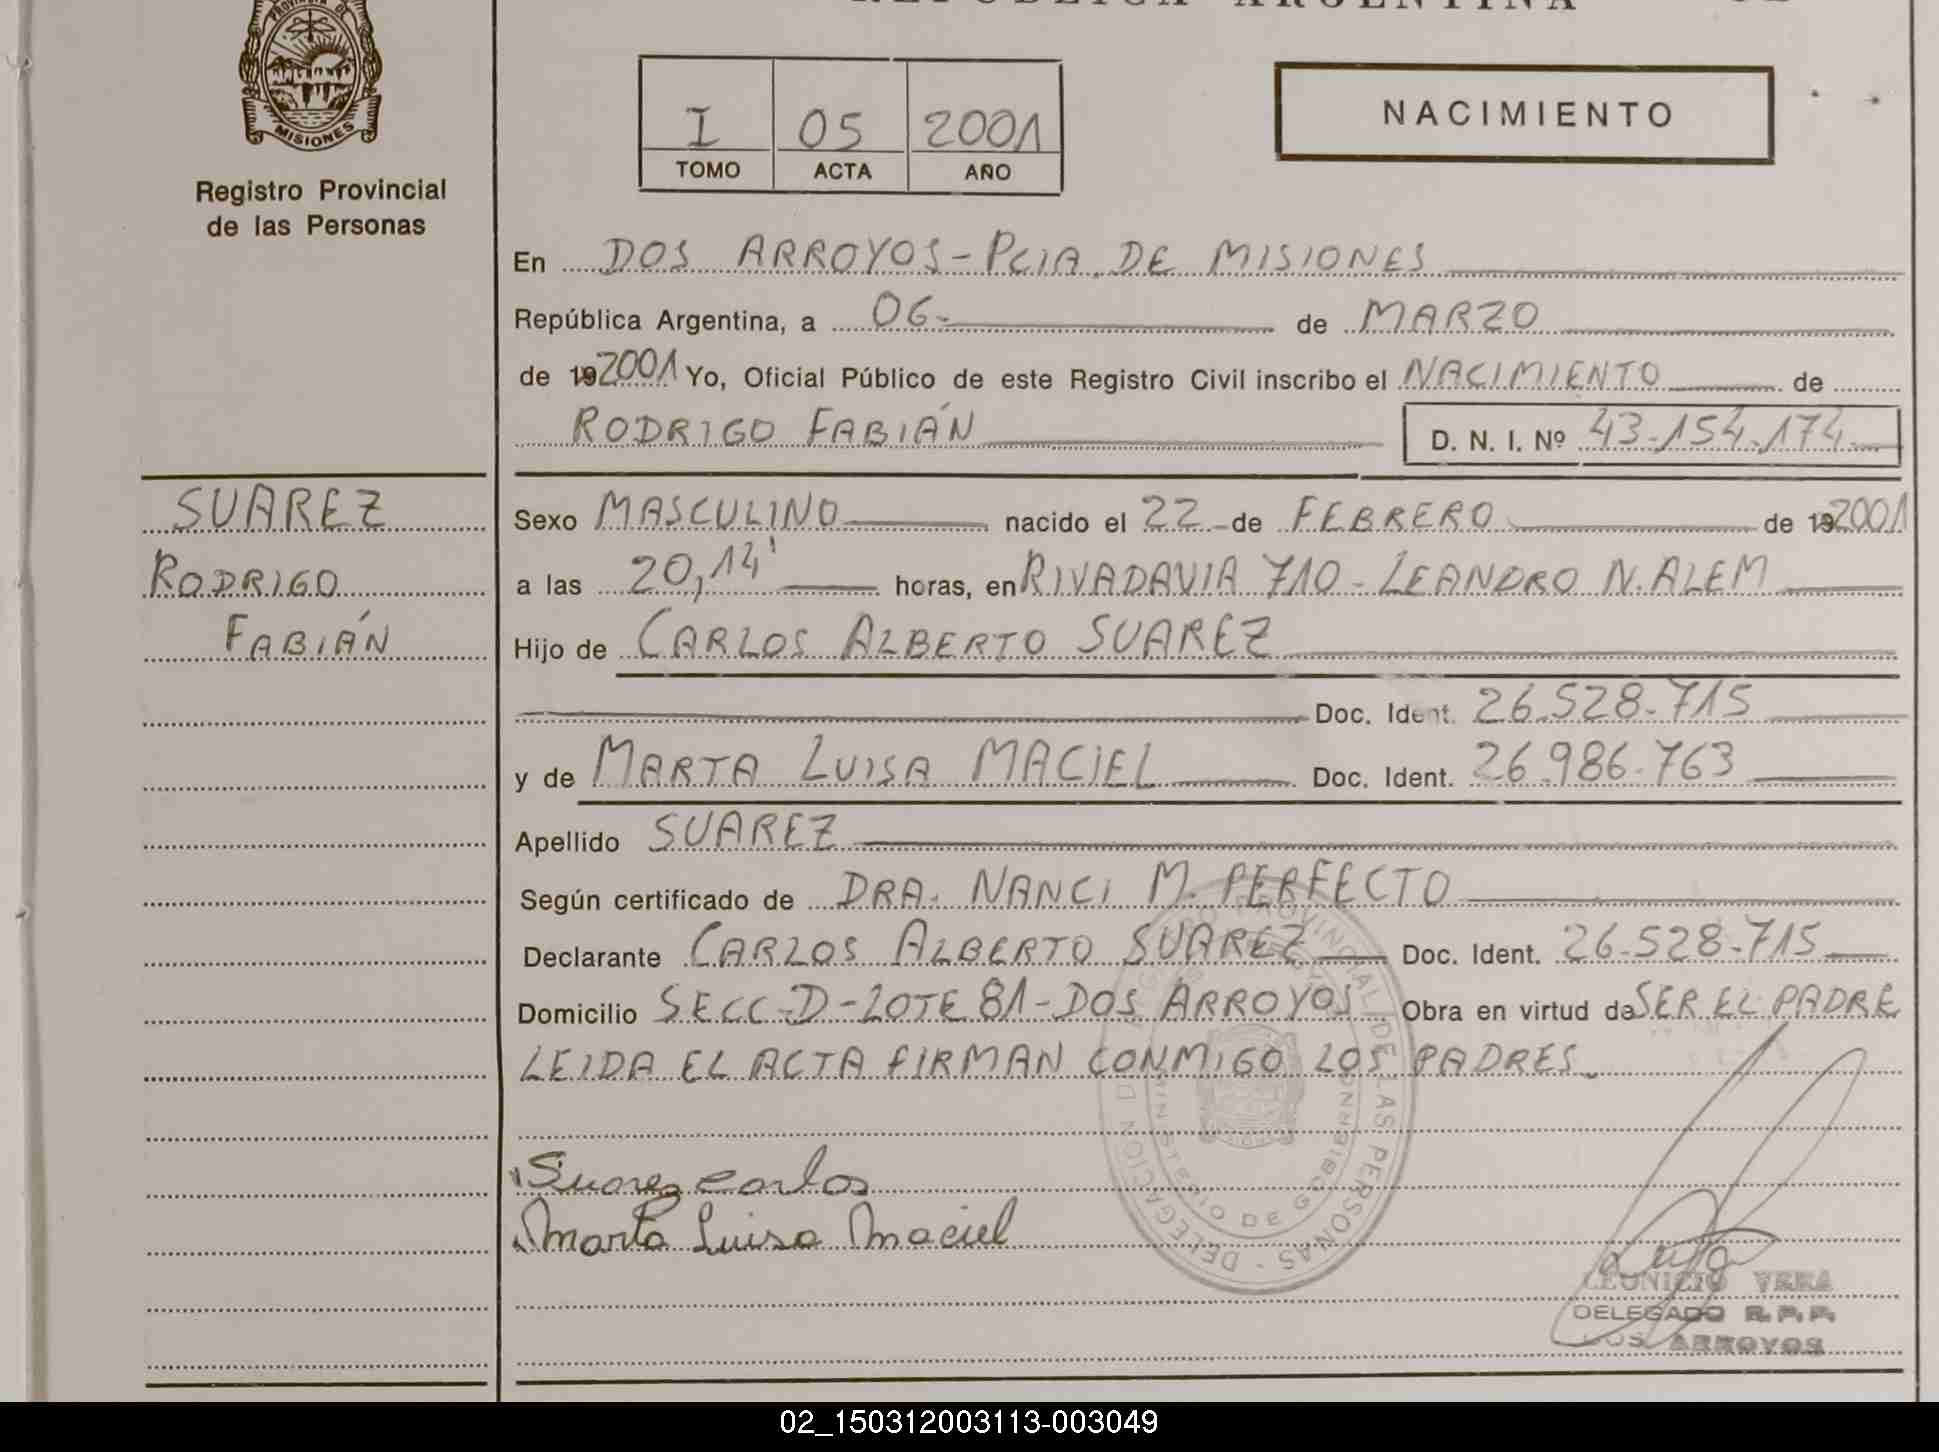 REPUBLICA ARGENTINA
PROVINCIA DE
MISIONES
Registro Provincial
de las Personas
I 05 2001
TOMO ACTA AÑO
NACIMIENTO
En DOS ARROYOS - PCIA. DE MISIONES
República Argentina, a 06- de MARZO
de 192001 Yo, Oficial Público de este Registro Civil inscribo el NACIMIENTO de
RODRIGO FABIÁN D. N. I. Nº 43-154-174
SUAREZ
RODRIGO
FABIÁN
Sexo MASCULINO nacido el 22 de FEBRERO de 192001
a las 20,14' horas, en RIVADAVIA 710 - LEANDRO N. ALEM
Hijo de CARLOS ALBERTO SUAREZ
Doc. Ident. 26.528-715
y de MARTA LUISA MACIEL Doc. Ident. 26.986-763
Apellido SUAREZ
Según certificado de DRA. NANCI M. PERFECTO
Declarante CARLOS ALBERTO SUAREZ Doc. Ident. 26-528-715
Domicilio SECC-D-LOTE 81-DOS ARROYOS Obra en virtud de SER EL PADRE
LEIDA EL ACTA FIRMAN CONMIGO LOS PADRES.
Suarez Carlos
Marta Luisa Maciel
REGISTRO PROVINCIAL DE LAS PERSONAS - DELEGACION
MINISTERIO DE GOBIERNO
LEONICIO VERA
DELEGADO R.P.P.
DOS ARROYOS
02_150312003113-003049